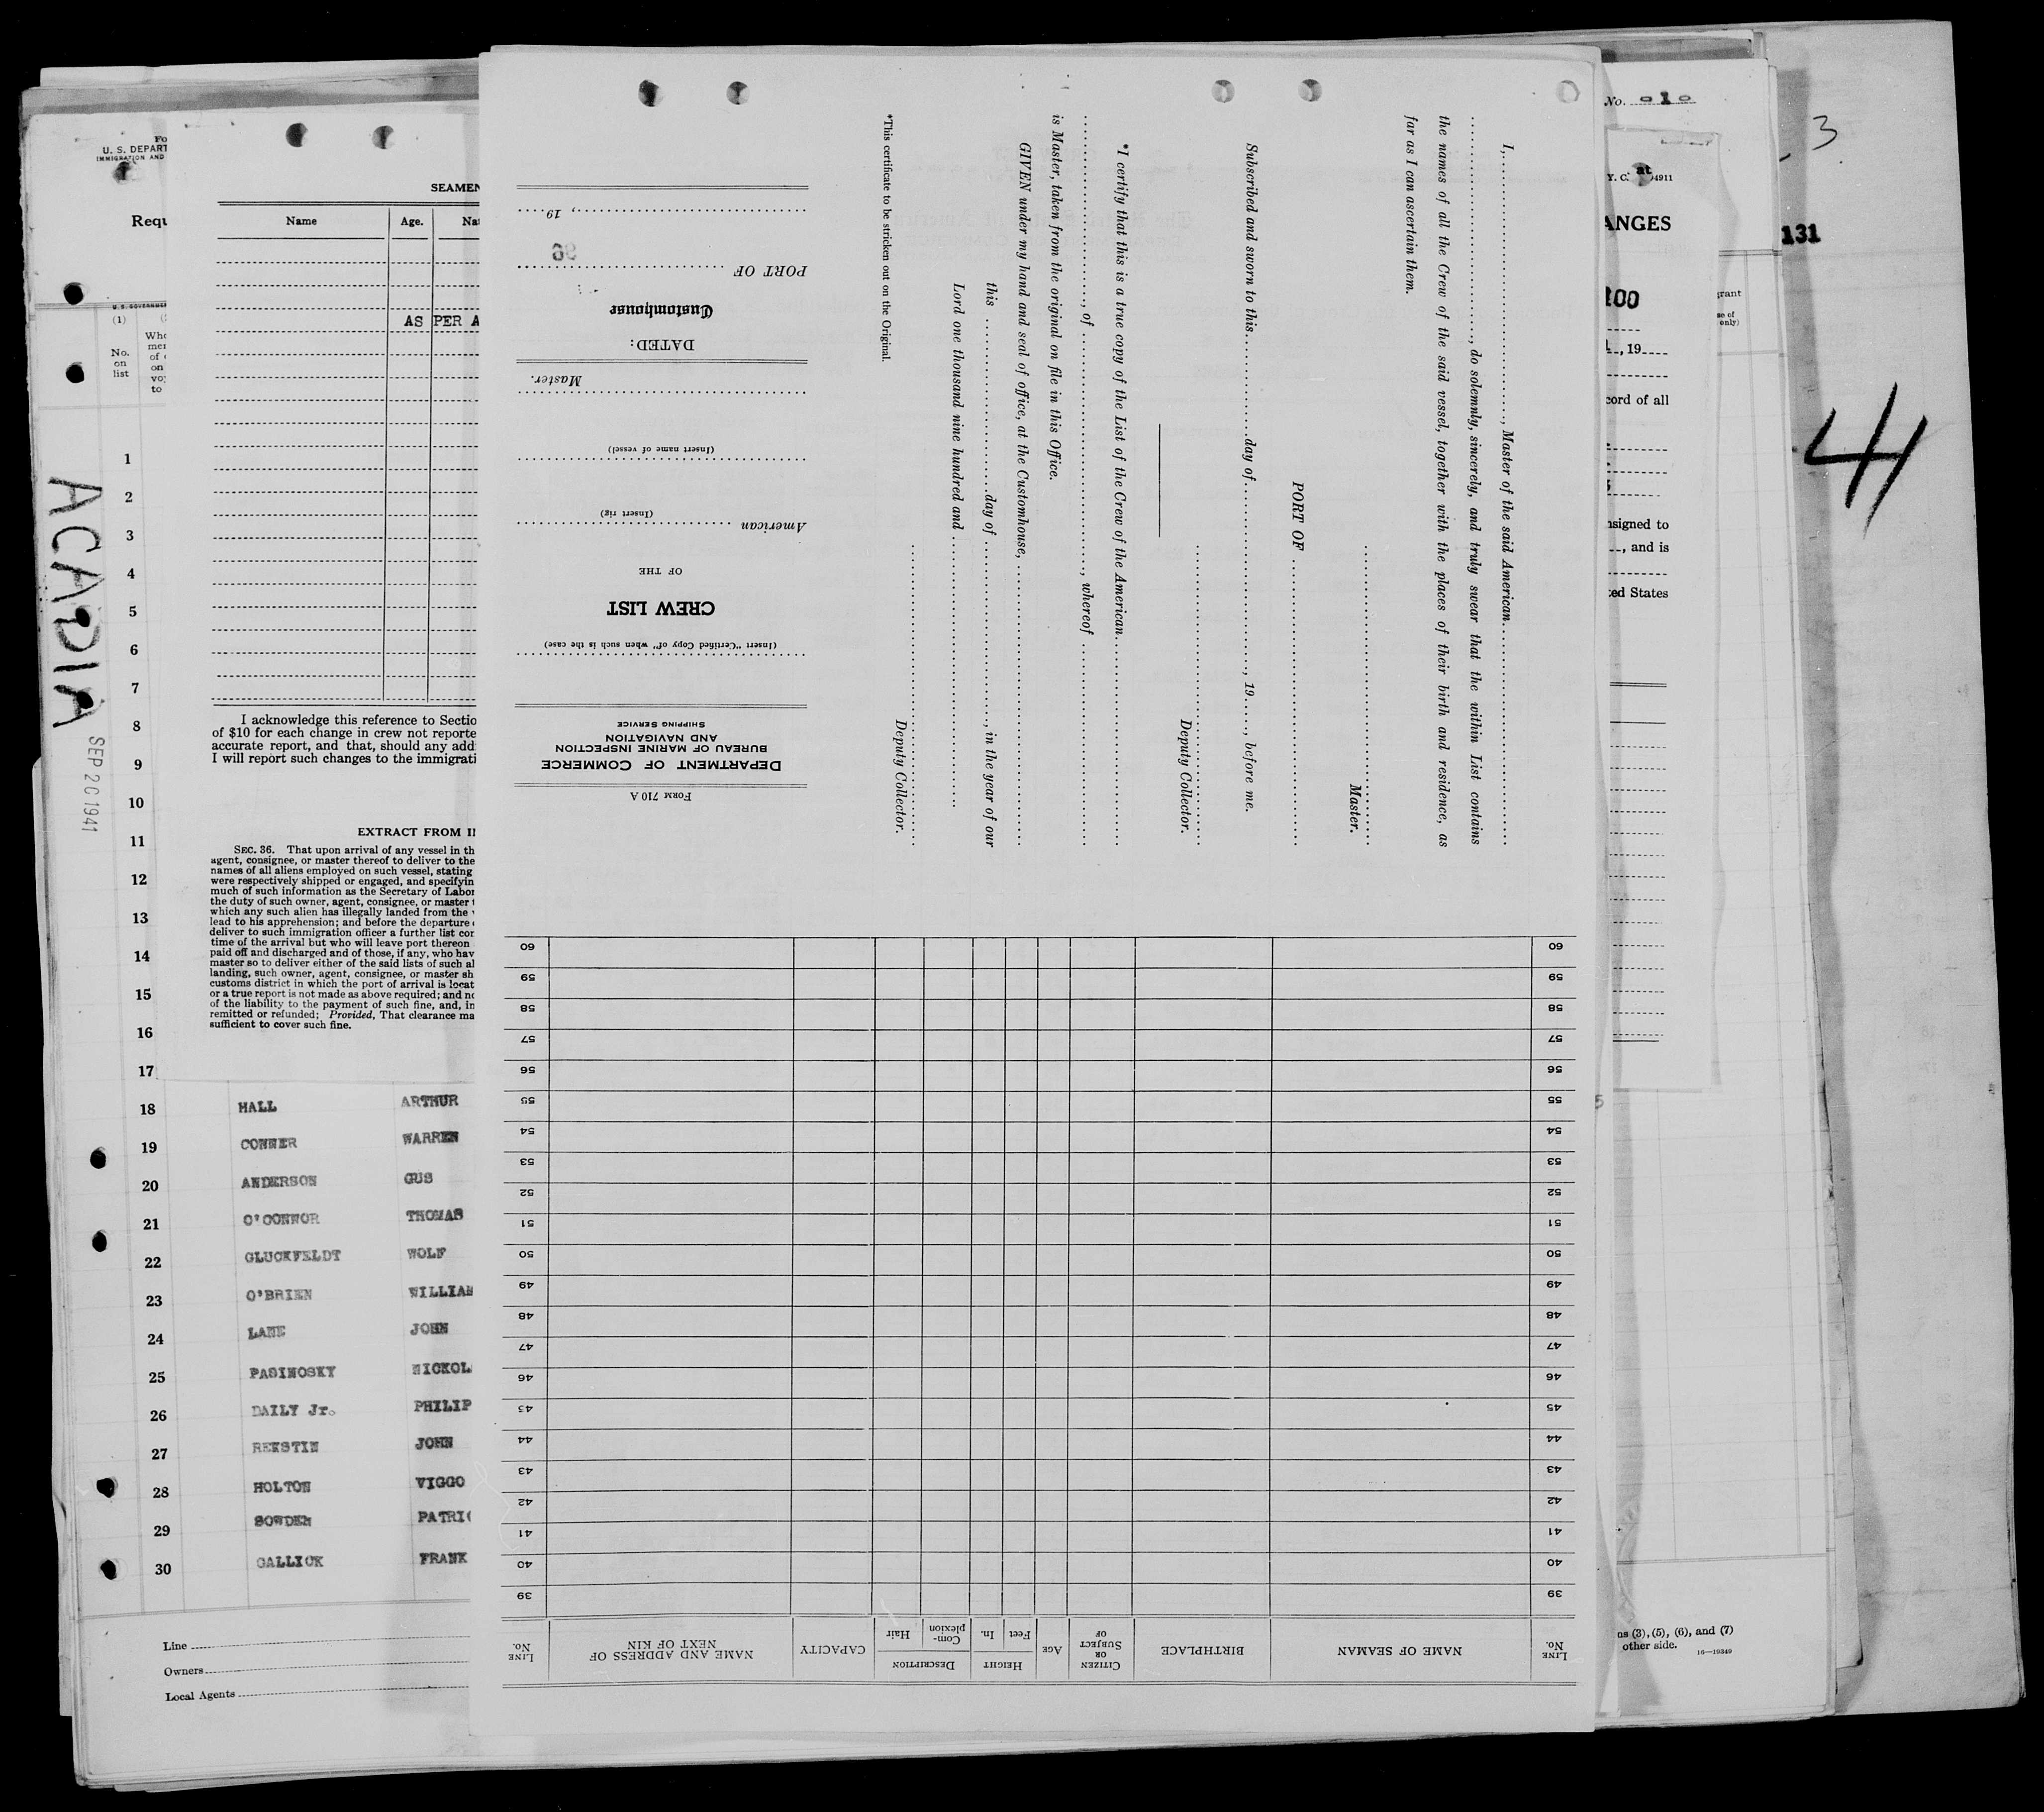 Fo
U. S. DEPART
IMMIGRATION AND
Requ
U. S. GOVERNMEN
(1)
No.
on
list
Whe
mer
of
on
voy
to
ACADIA
SEP 20 1941
1
2
3
4
5
6
7
8
9
10
11
12
13
14
15
16
17
18 HALL ARTHUR
19 CONNER WARREN
20 ANDERSON GUS
21 O'CONNOR THOMAS
22 GLUCKFELDT WOLF
23 O'BRIEN WILLIAM
24 LANE JOHN
25 PASINOSKY NICKOL
26 DAILY Jr. PHILIP
27 REKSTIN JOHN
28 HOLTON VIGGO
29 SOWDEN PATRIC
30 GALLICK FRANK
Line
Owners
Local Agents
SEAMEN
Name Age. Nat
AS PER A
I acknowledge this reference to Sectio
of $10 for each change in crew not reporte
accurate report, and that, should any add
I will report such changes to the immigrati
EXTRACT FROM I
SEC. 36. That upon arrival of any vessel in th
agent, consignee, or master thereof to deliver to the
names of all aliens employed on such vessel, stating
were respectively shipped or engaged, and specifyin
much of such information as the Secretary of Labor
the duty of such owner, agent, consignee, or master t
which any such alien has illegally landed from the v
lead to his apprehension; and before the departure o
deliver to such immigration officer a further list con
time of the arrival but who will leave port thereon
paid off and discharged and of those, if any, who hav
master so to deliver either of the said lists of such al
landing, such owner, agent, consignee, or master sh
customs district in which the port of arrival is locat
or a true report is not made as above required; and no
of the liability to the payment of such fine, and, in
remitted or refunded; Provided, That clearance ma
sufficient to cover such fine.
FORM 710 A
DEPARTMENT OF COMMERCE
BUREAU OF MARINE INSPECTION
AND NAVIGATION
SHIPPING SERVICE
(Insert "Certified Copy of" when such is the case)
CREW LIST
OF THE
American
(Insert rig)
(Insert name of vessel)
Master.
DATED:
Customhouse
PORT OF
, 19
I,, Master of the said American
, do solemnly, sincerely, and truly swear that the within List contains
the names of all the Crew of the said vessel, together with the places of their birth and residence, as
far as I can ascertain them.
Master.
PORT OF
Subscribed and sworn to this day of , 19 , before me.
Deputy Collector.
*I certify that this is a true copy of the List of the Crew of the American
, of , whereof
is Master, taken from the original on file in this Office.
GIVEN under my hand and seal of office, at the Customhouse,
this day of , in the year of our
Lord one thousand nine hundred and
Deputy Collector.
*This certificate to be stricken out on the Original.
LINE No. NAME OF SEAMAN BIRTHPLACE CITIZEN OR SUBJECT OF AGE HEIGHT Feet In. DESCRIPTION Com-plexion Hair CAPACITY NAME AND ADDRESS OF NEXT OF KIN LINE No.
39 39
40 40
41 41
42 42
43 43
44 44
45 45
46 46
47 47
48 48
49 49
50 50
51 51
52 52
53 53
54 54
55 55
56 56
57 57
58 58
59 59
60 60
No. 1
at
Y. C. 4911
ANGES
, 19
cord of all
nsigned to
, and is
ted States
3
131
grant
se of
only)
44
ns (3), (5), (6), and (7)
other side.
16—19349